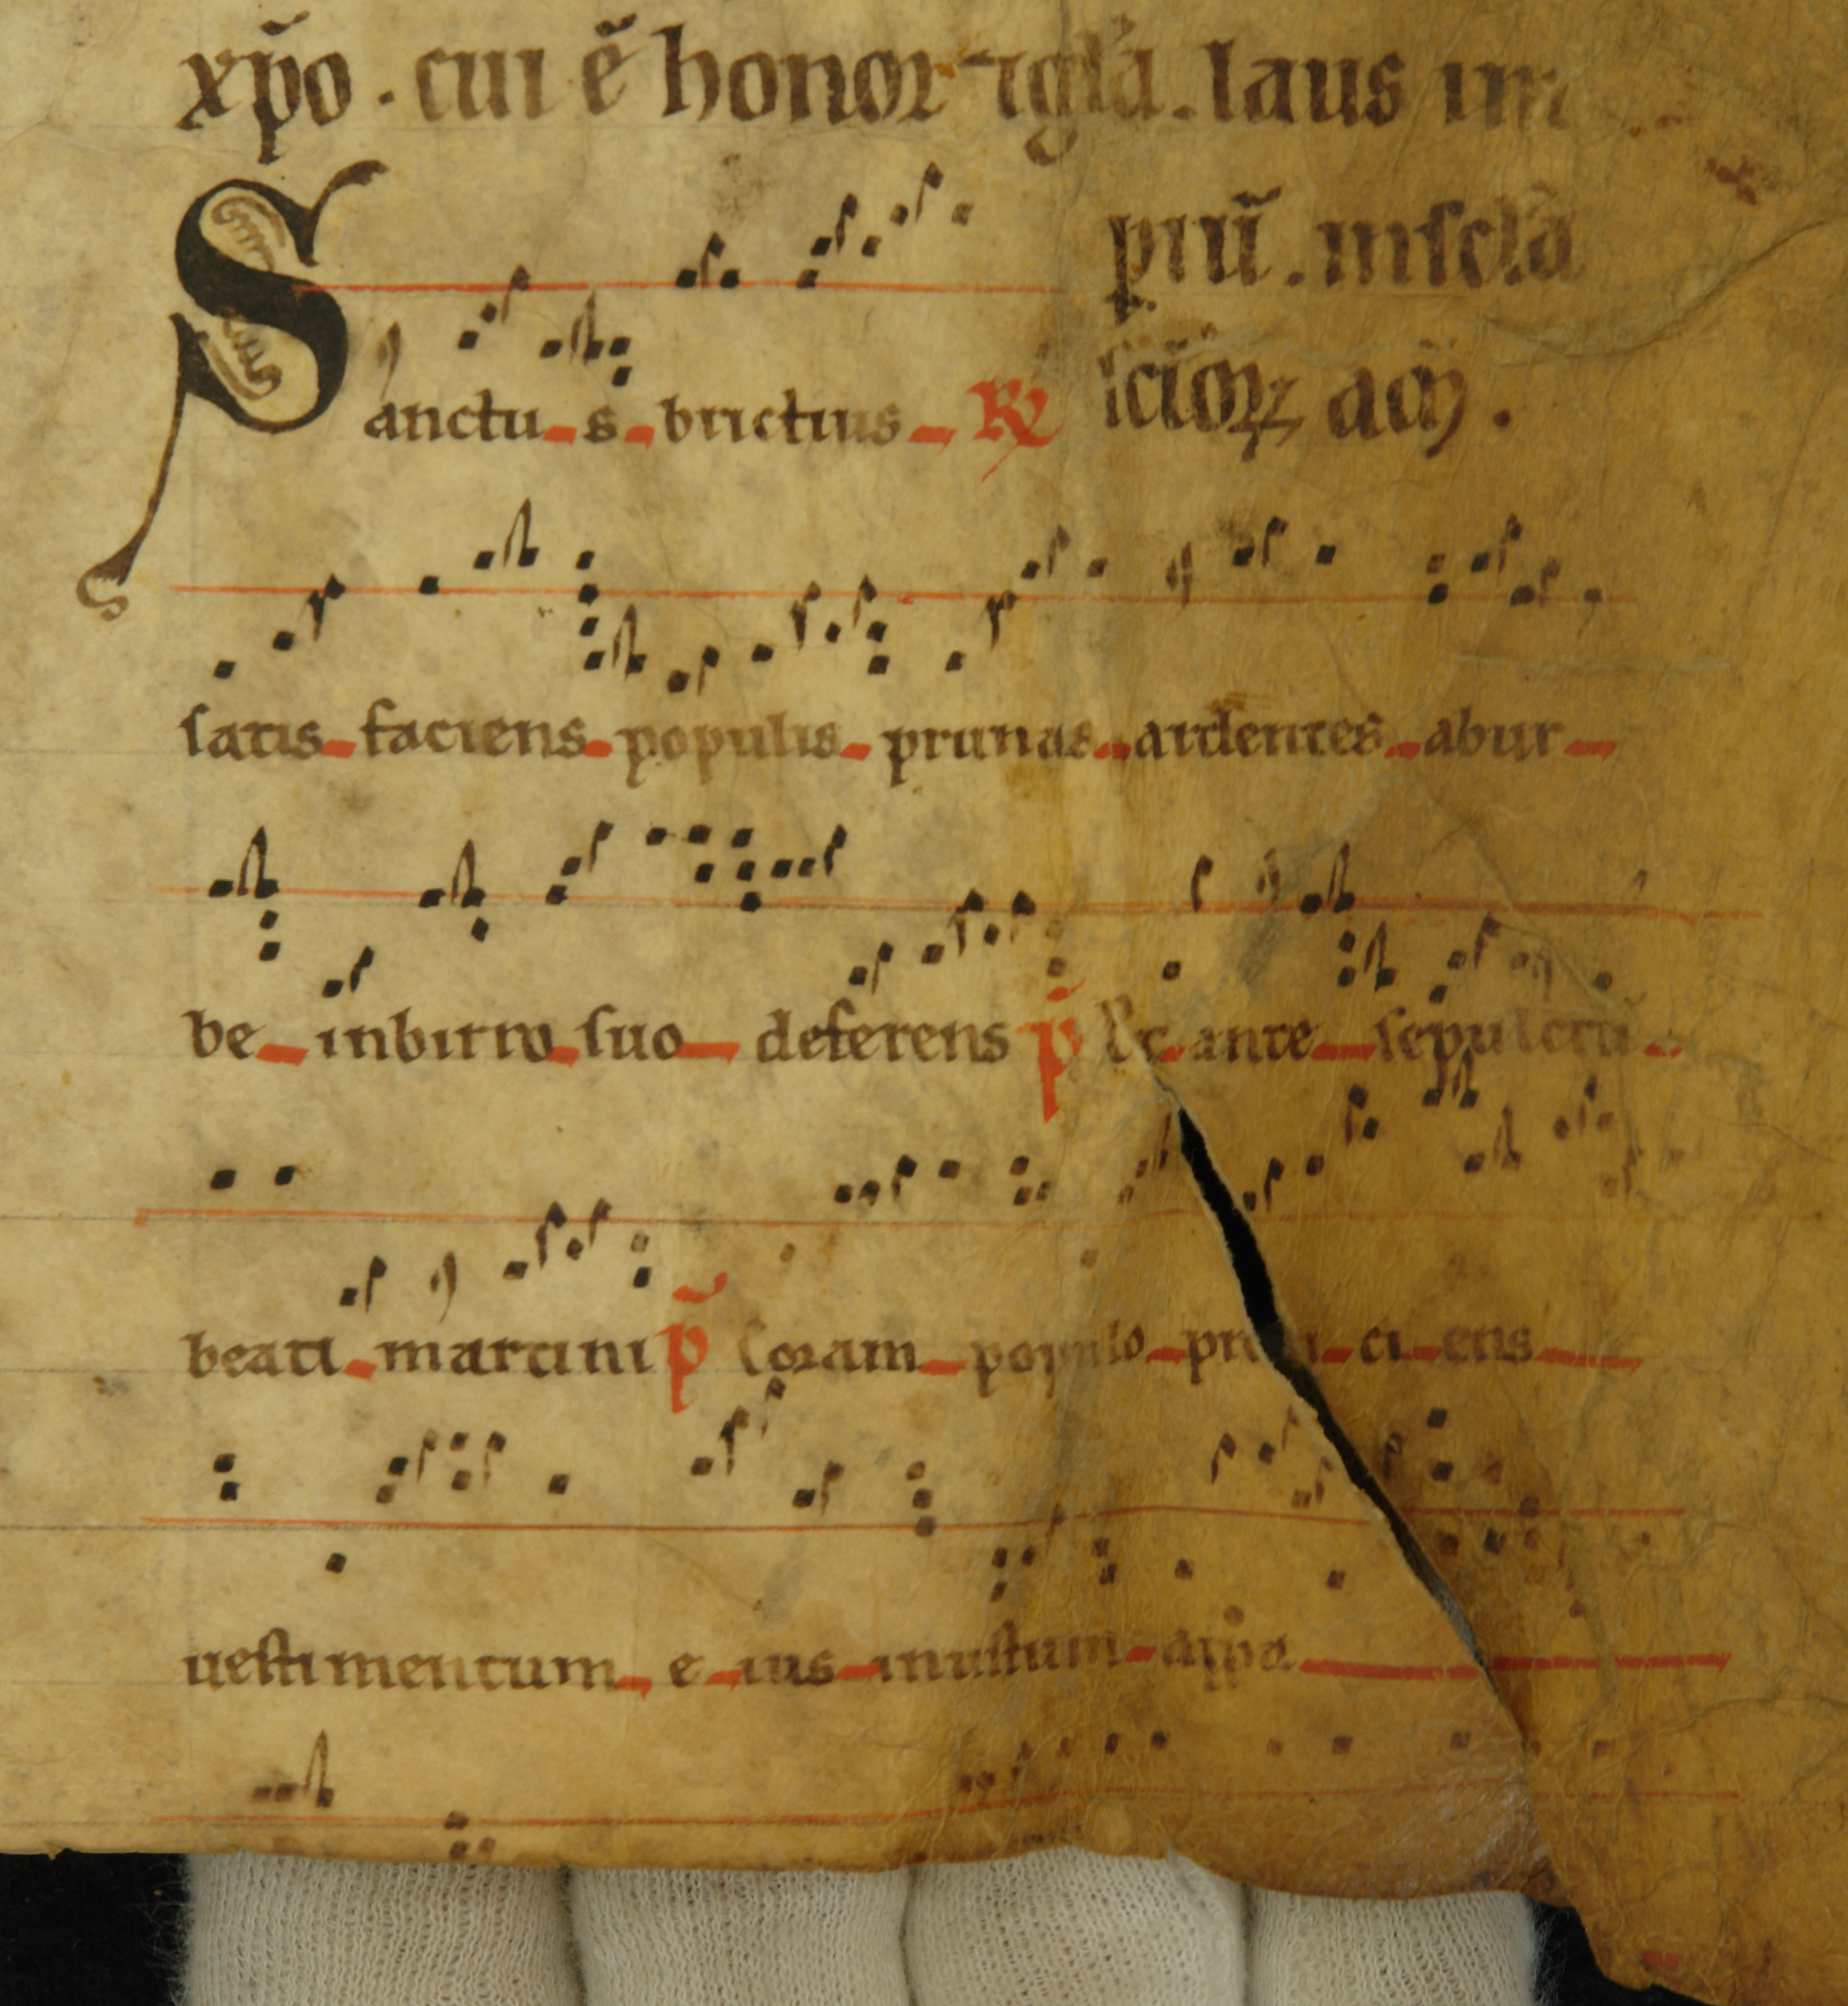 xp̄o . cui ē honor ⁊ gl̄a . laus im
piū . in sc̄la
Sanctus brictius ℟ sc̄loꝝ am̄ .
satis faciens populis prunas ardentes abur
be in birro suo deferens p̄ Et ante sepulcrū
beati martini p̄ Coram populo ci ens
uestimentum eius inustum